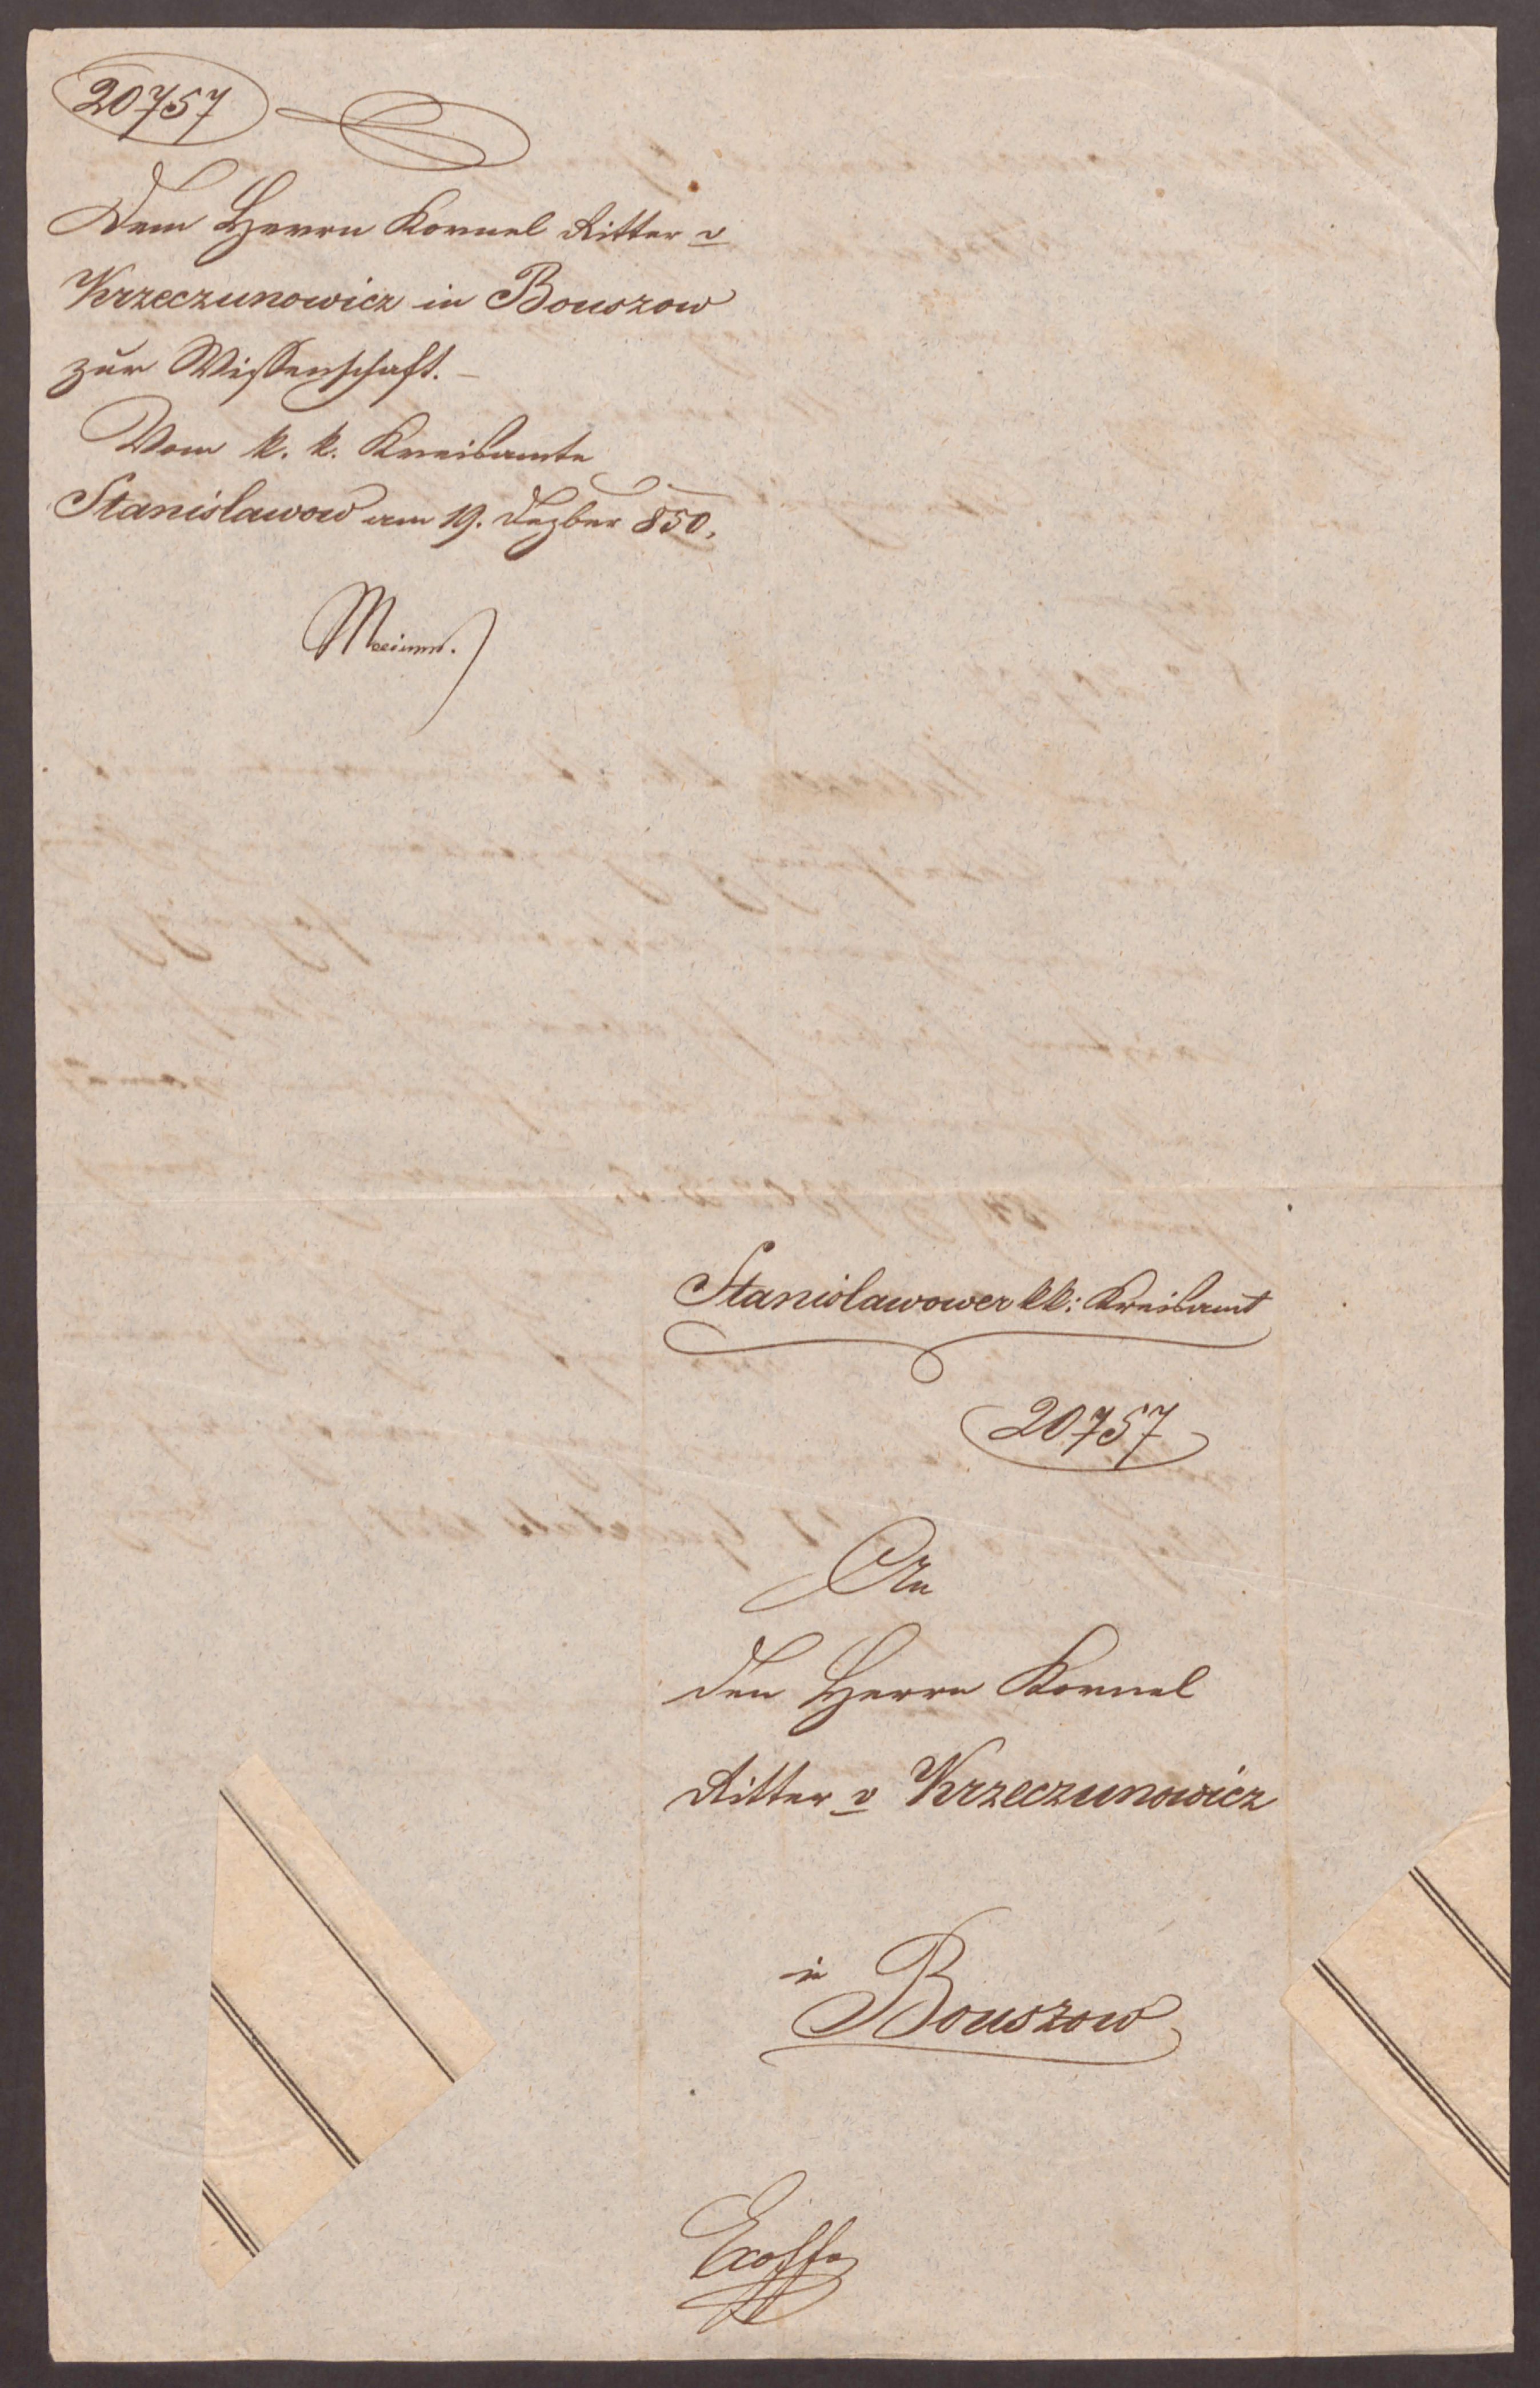 20757
Dem Herrn Kornel Ritter v
Krzeczunowicz in Bouszow
zur Wissenschaft. –
Vom k. k. Kreisamte
Stanislawow am 19. Dezber 850.
Stanislawower kk: Kreisamt
20757
An
den Herrn Kornel
Ritter v Krzeczunowicz
in
Bouszow
Exoffo